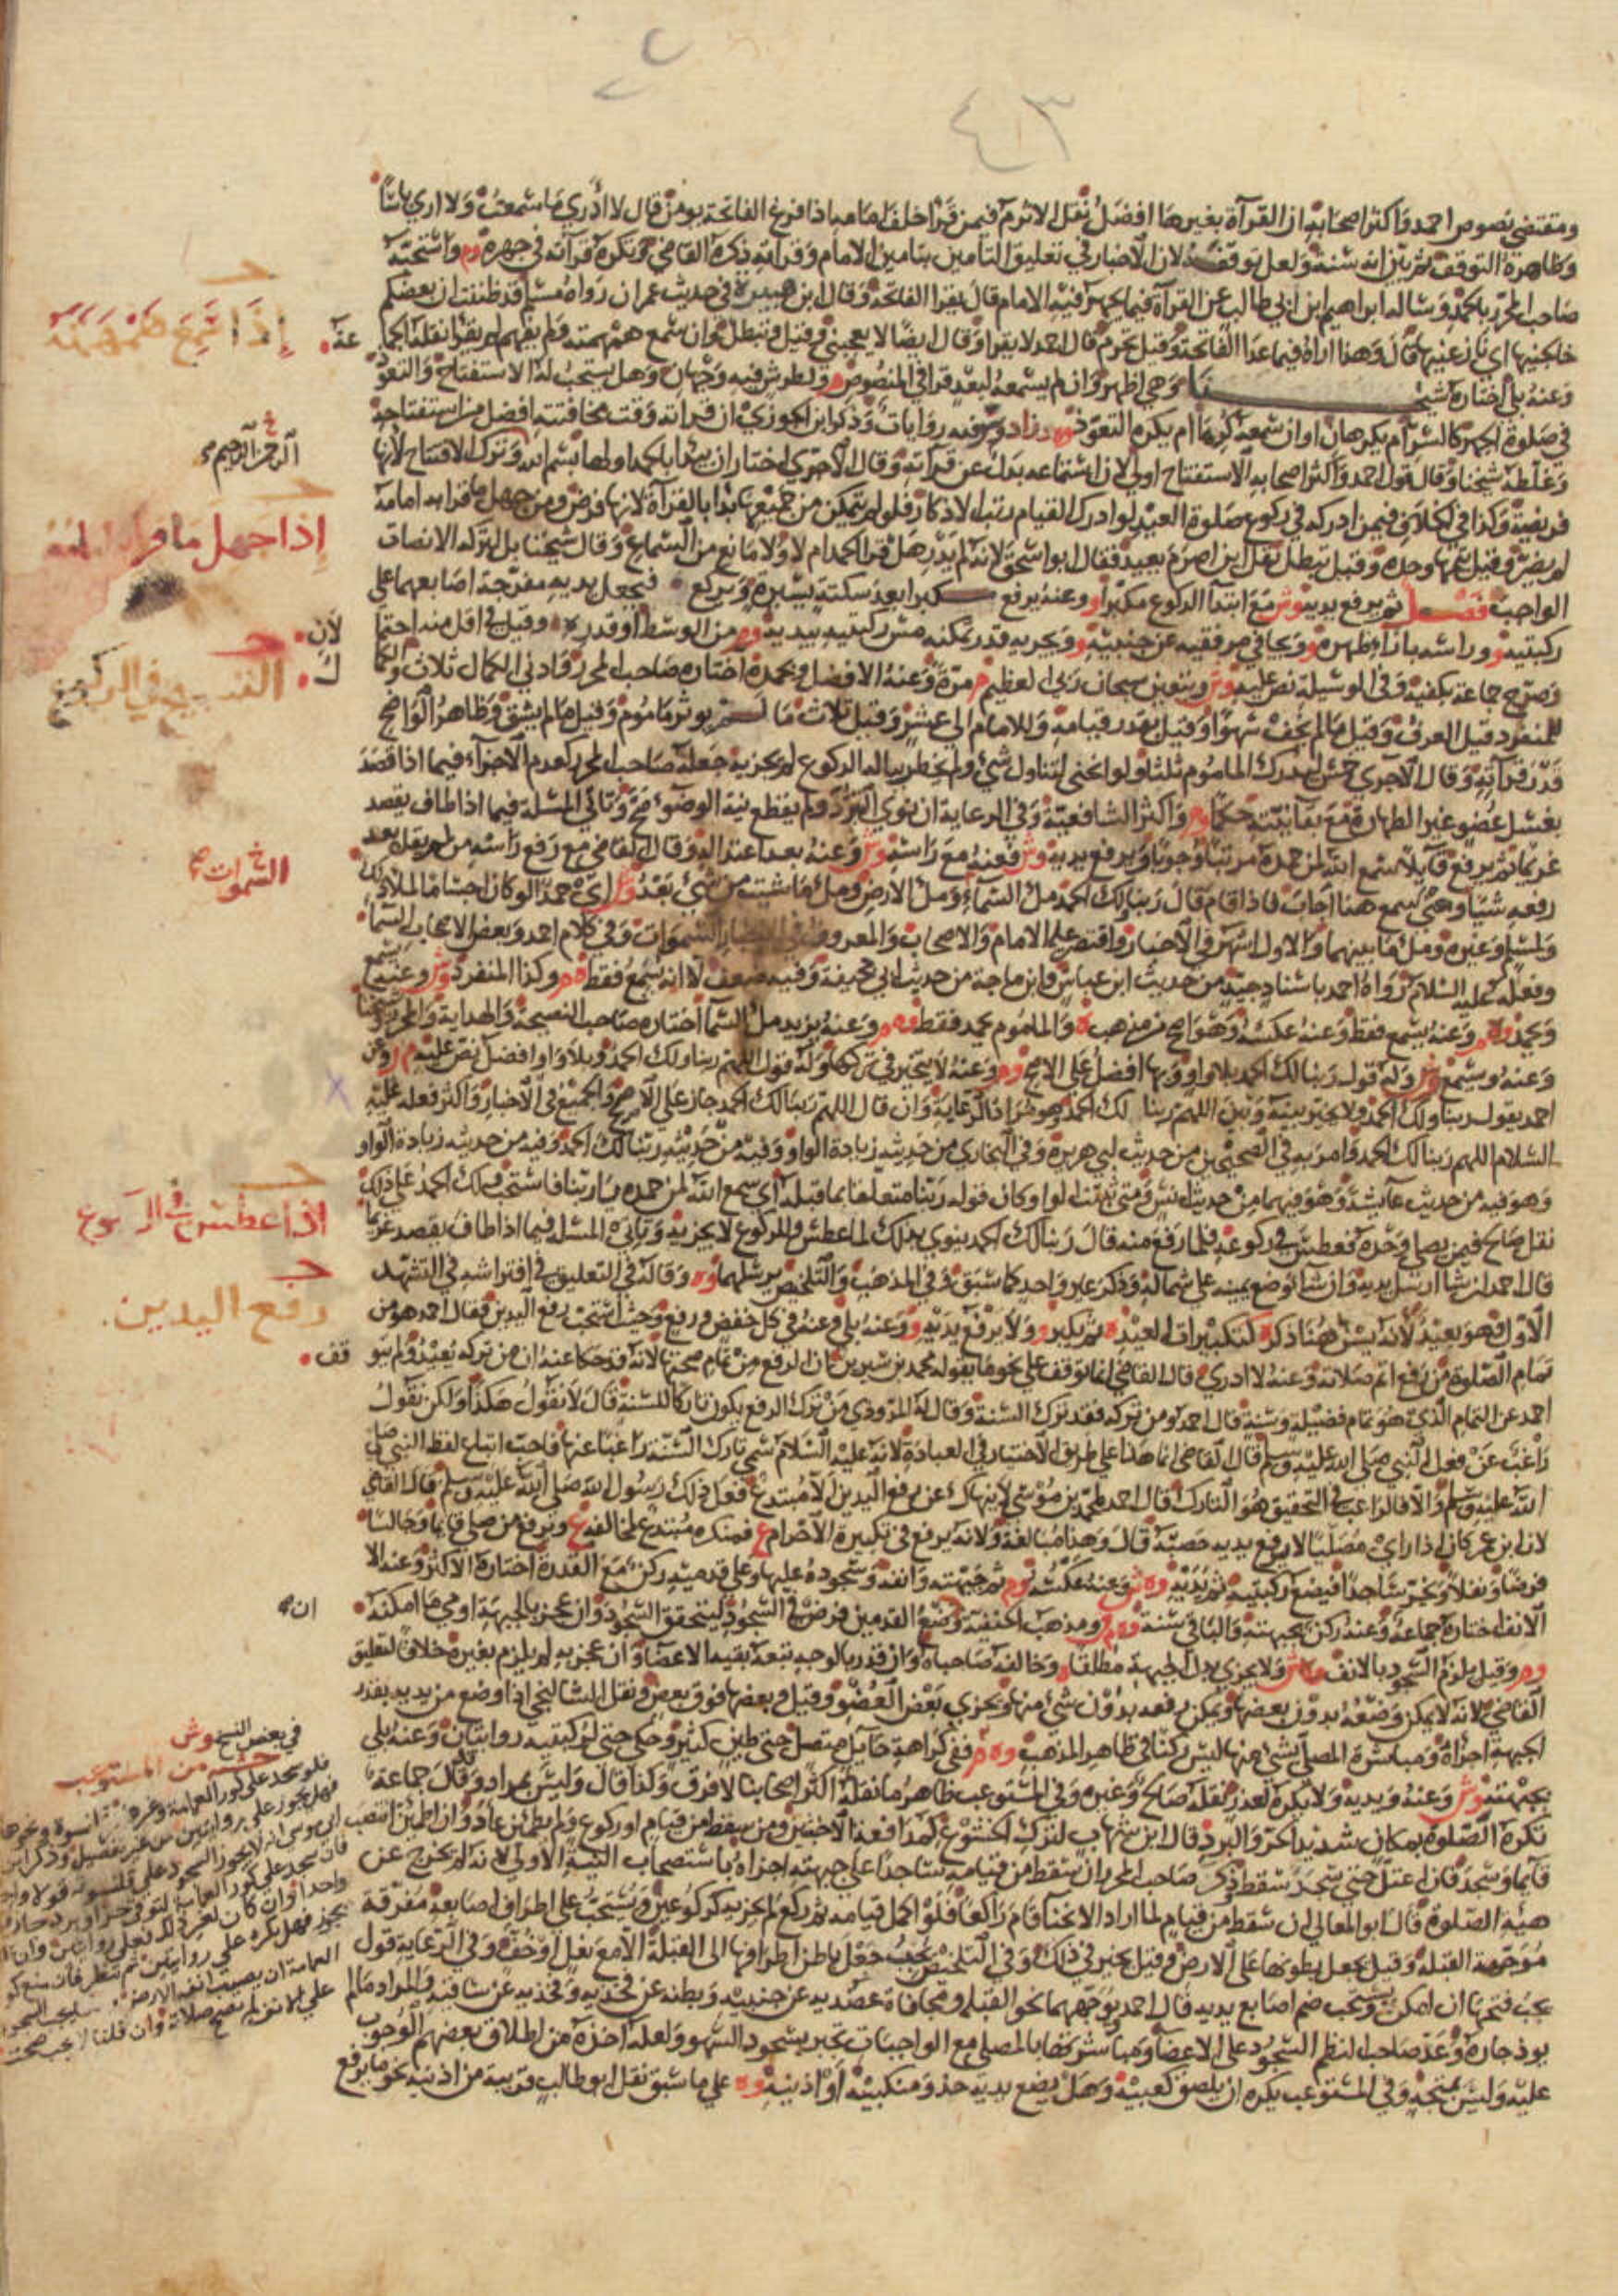 ومقتضى نصوص احمد واكثر اصحابه ان القرآة بغيرها افضل نقل الاثرم فيمن قرا خلف امامه اذا فرغ الفاتحة يومن قال لا ادري ما سمعت ولا ارى باسا
وظاهره التوقف ثم بين انه سنة ولعل توقفه لان الاخبار في تعليق التامين بتامين الامام وقرآته ذكره القاضي وتكره قرآته في جهره وم واستحبه
صاحب المحرر بالحمد وساله ابراهيم ابن ابي طالب عن القرآة فيما يجهر فيه الامام قال يقرا الفاتحة وقال ابن هبيرة في حديث عمران رواه مسلم قد ظننت ان بعضكم
خالجنيها اي نازعنيها قال وهذا اراه فيما عدا الفاتحة وقيل تحرم قال احمد لا يقرا وقال ايضا لا يعجبني وقيل وتبطل وان سمع همهمته ولم يفهم لم يقرا نقله الجماعة
وعنه بلى اختاره شيخنا وهي اظهر وان لم يسمعه لبعد قرا في المنصوص ولطرش فيه وجهان وهل يستحب لذا الاستفتاح والتعوذ
في صلوة الجهر كالسر ام يكرهان او ان سمعه كرها ام يكره التعوذ روايات وذكر ابن الجوزي ان قرآته وقت مخافتته افضل من استفتاحه
وغلطه شيخنا وقال قول احمد واكثر اصحابه الاستفتاح اولى لان استماعه بدل عن قرآته وقال الآجري اختار ان يبدا بالحمد اولها بسم الله وترك الافتتاح لانها
فريضة وكذا في الخلاف فيمن ادركه في ركوع صلوة العيد لو ادرك القيام رتب الاذكار فلو لم يتمكن من جميعها بدا بالقرآة لانها فرض ومن جهل ما قرا به امامه
لم يضر وقيل يتمها وحده وقيل تبطل نقل ابن اصرم يعيد فقال ابو اسحق لانه لم يدر هل قرا الحمد ام لا ولا مانع من السماع وقال شيخنا بل لتركه الانصات
الواجب فصل ثم يرفع يديه وش مع ابتدا الركوع مكبرا و وعنه يرفع مكبرا بعد سكتة يسيرة ويركع فيجعل يديه مفرجة اصابعهما على
ركبتيه و وراسه بازاء ظهره و ويجافي مرفقيه عن جنبيه و ويجزيه قدر تمكنه مس ركبتيه بيديه من الوسط او قدره وقيل في اقل منه احتمالان
وصرح جماعة بكفيه وفي الوسيلة نص عليه وش ويتعين سبحان ربي العظيم مرة وعنه الافضل وبحمده اختاره صاحب المحرر وادنى الكمال ثلاث والكمال
للمنفرد قيل العرف وقيل ما لم يخف سهوا وقيل بقدر قيامه وللامام الى عشر وقيل ثلاث ما لم يوثر ماموم وقيل ما لم يشق وظاهر الواضح
قدر قرآته وقال الآجري خمس ليدرك الماموم ثلثا ولو انحنى لتناول شئ ولم يخطر بباله الركوع لم يجزيه جعله صاحب المحرر كعدم الاجزاء فيما اذا قصد
بغسل عضو غير الطهارة مع بقآ نيته حكما وم واكثر الشافعية وفي الرعاية ان نوى التبرد ولم يقطع نية الوضوء صح وتاتي المسلة فيما اذا طاف يقصد
غريما ثم يرفع قآيلا سمع الله لمن حمده مرتبا وجوبا ويرفع يديه وش فعنه مع راسه وش وعنه بعد اعتداله وقال القاضي مع رفع راسه من لم يقل بعد
رفعه شيا ومعنى سمع هنا اجاب فاذا قام قال ربنا لك الحمد مل السماء ومل الارض ومل ما شيت من شئ بعد وش اي حمدا لو كان اجساما لملا ذلك
ولمسلم وغيره ومل ما بينهما والاول اشهر في الاخبار واقتصر عليه الامام والاصحاب والمعروف في الاخبار السموات وفي كلام احمد وبعض الاصحاب السما
وفعله عليه السلام رواه احمد باسناد جيد من حديث ابن عباس وابن ماجة من حديث ابي جحيفة وفيه ضعف لا انه يسمع فقط وكذا المنفرد وش وعنه يسمع
ويحمد وعنه يسمع فقط وعنه عكسه وهو اصح من مذهب والماموم يحمد فقط وعنه يزيد مل السما اختاره صاحب النصيحة والهداية والمحرر وشيخنا
وعنه ويسمع وش وله قول ربنا لك الحمد بلا واو وبها افضل على الاصح وعنه لا يتخير في تركها وله قول اللهم ربنا ولك الحمد وبلا واو افضل نص عليه وعن
احمد يقول ربنا ولك الحمد ولا يخير بينه وبين اللهم ربنا لك الحمد وان قال اللهم ربنا لك الحمد جاز على الاصح والجميع في الاخبار واكثر فعله عليه
السلام اللهم ربنا لك الحمد وامر به في الصحيحين من حديث ابي هريرة وفي البخاري من حديثه زيادة الواو وفيه من حديثه ربنا لك الحمد وفيه من حديثه زيادة الواو
وهو فيه من حديث عآيشة وهو فيهما من حديث انس ومتى ثبتت الواو كان قوله ربنا متعلقا بما قبله اي سمع الله لمن حمده يا ربنا فاستجب ولك الحمد على ذلك
نقل صالح فيمن يصلي وحده فعطس في ركوعه فلما رفع منه قال ربنا لك الحمد ينوي بذلك لما عطس وللركوع لا يجزيه وتاتي المسلة فيما اذا طاف يقصد غريما
قال احمد ان شا ارسل يديه وان شا وضع يمينه على شماله وذكر غير واحد كما سبق وفي المذهب والتلخيص يرسلهما وه وقاله في التعليق في افتراشه في التشهد
الاول فهو بعيد لانه يسن هنا ذكر كتكبيرات العيد ثم يكبر و ولا يرفع يديه و وعنه بلى وعنه في كل خفض ورفع وحيث استحب رفع اليدين فقال احمد هو من
تمام الصلوة من رفع اتم صلاته وعنه لا ادري قال القاضي انما توقف على نحو ما يقوله محمد بن سيرين ان الرفع من تمام صحتها لانه قد حكا عنه ان من تركه يعيد ولم يتوقف
احمد عن التمام الذي هو تمام فضيلة وسنة قال احمد ومن تركه فقد ترك السنة وقال له المروذي من ترك الرفع يكون تاركا للسنة قال لا نقول هكذا ولكن نقول
راغب عن فعل النبي صلى الله عليه وسلم قال القاضي انما هذا على طريق الاختيار في العبادة لانه عليه السلام سمى تارك السنة راغبا عنها فاحب اتباع لفظ النبي صلى
الله عليه وسلم والا فالراغب في التحقيق هو التارك قال احمد لمحمد بن موسى لا ينهاك عن رفع اليدين الا مبتدع فعل ذلك رسول الله صلى الله عليه وسلم قال القاضي
لان ابن عمر كان اذا راى مصليا لا يرفع يديه حصبه قال وهذا مبالغة ولانه يرفع في تكبيرة الاحرام ع فمنكره مبتدع لمخالفته ع ويرفع من صلى قايما وجالسا
فرضا ونفلا ويخر ساجدا فيضع ركبتيه ثم يديه وه ش وعنه عكسه وم ثم جبهته وانفه وسجوده عليها وعلى قدميه ركن مع القدرة اختاره الاكثر وعنه الا
الانف اختاره جماعة وعنه ركن بجبهته والباقي سنة ومذهب الحنفية وضع القدمين فرض في السجود ليتحقق السجود وان عجز بالجبهة اومى ما امكنه
وقيل يلزم السجود بالانف ولا يجزي بدل الجبهة مطلقا وخالفه صاحباه وان قدر بالوجه تبعه بقية الاعضا وان عجز به لم يلزم بغيره خلافا لتعليق
القاضي لانه لا يمكن وضعه بدون بعضها ويمكن رفعه بدون شئ منها ويجزي بعض العضو وقيل وبعضها فوق بعض ونقل الشالنجي اذا وضع من يديه بقدر
الجبهة اجزاه ومباشرة المصلى بشئ منها ليس ركنا في ظاهر المذهب ففي كراهة حايل متصل حتى طين كثير وحكى حتى لركبتيه روايتان وعنه بلى
بجبهته وش وعنه ويديه ولا يكره لعذر نقله صالح وغيره وفي المستوعب ظاهر ما نقله اكثر اصحابنا لا فرق وكذا قال وليس بمراد وقال جماعة
تكره الصلوة بمكان شديد الحر والبرد قال ابن شهاب لترك الخشوع كمدافعة الاخبثين ومن سقط من قيام او ركوع ولم يطمئن عاد وان اطمئن انتصب
قآيما وسجد فان اعتل حتى سجد سقط وذكر صاحب المحرر ان سقط من قيامه ساجدا على جبهته اجزاه باستصحاب النية الاولى لانه لم يخرج عن
هيئة الصلوة قال ابو المعالي ان سقط من قيام لما اراد الانحنآ قام راكعا فلو اكمل قيامه ثم ركع لم يجزيه كركوعين ويستحب على اطراف اصابعه مفرقة
موجهة القبلة وقيل يجعل بطونها على الارض وقيل يخير في ذلك وفي التلخيص يجب جعل باطن اطرافها الى القبلة الا مع نعل او خف وفي الرعاية قول
يجب فتحها ان امكن ويستحب ضم اصابع يديه قال احمد ويوجههما نحو القبلة ومجافاة عضديه عن جنبيه وبطنه عن فخذيه وفخذيه عن ساقيه والمراد ما لم
يوذ جاره وعد صاحب النظم السجود على الاعضآ ومباشرتها بالمصلى مع الواجبات تجبر بسجود السهو ولعله اخذه من اطلاق بعضهم الوجوب
عليه وليس بمتجه وفي المستوعب يكره ان يلصق كعبيه وهل يضع يديه حذو منكبيه او اذنيه وه على ما سبق نقل ابو طالب قريبة من اذنيه نحو ما يرفع
إذا سمع همهمته
الرحمن الرحيم
إذا جهل ما قرا به امامه
التسبيح في الركوع
السموات
اذا عطس في الركوع
رفع اليدين
في بعض النسخ وش
من المستوعب